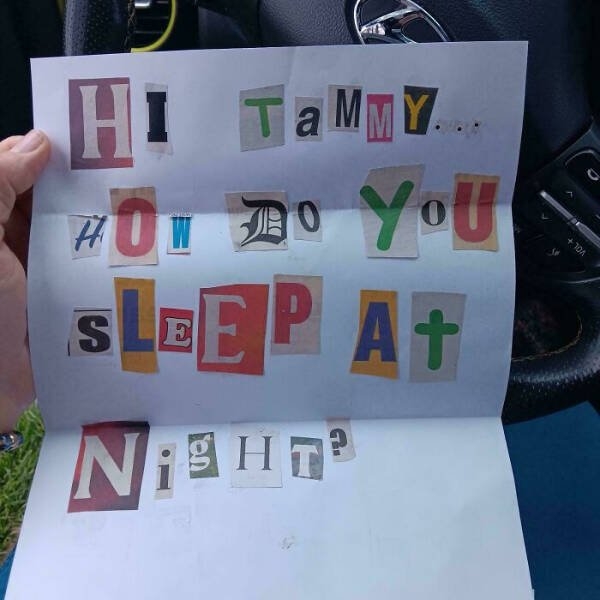 HI TaMMY...
HOW DO YOU
sLEEP At
NigHT?
VOL +